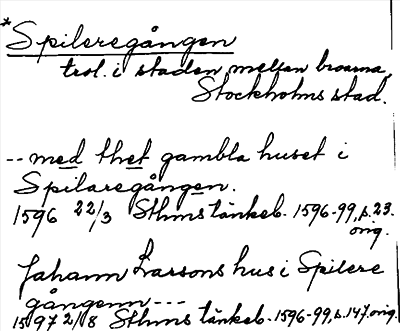 *Spileregången
trol. i staden mellan broarna,
Stockholms stad.
-- med thet gambla huset i
Spilaregången.
1596 22/3 Sthms tänkeb. 1596-99, s. 23.
orig.
Jahann Larssons hus i Spilere
gångenn ---
1597 2/8 Sthms tänkeb. 1596-99, s. 147. orig.